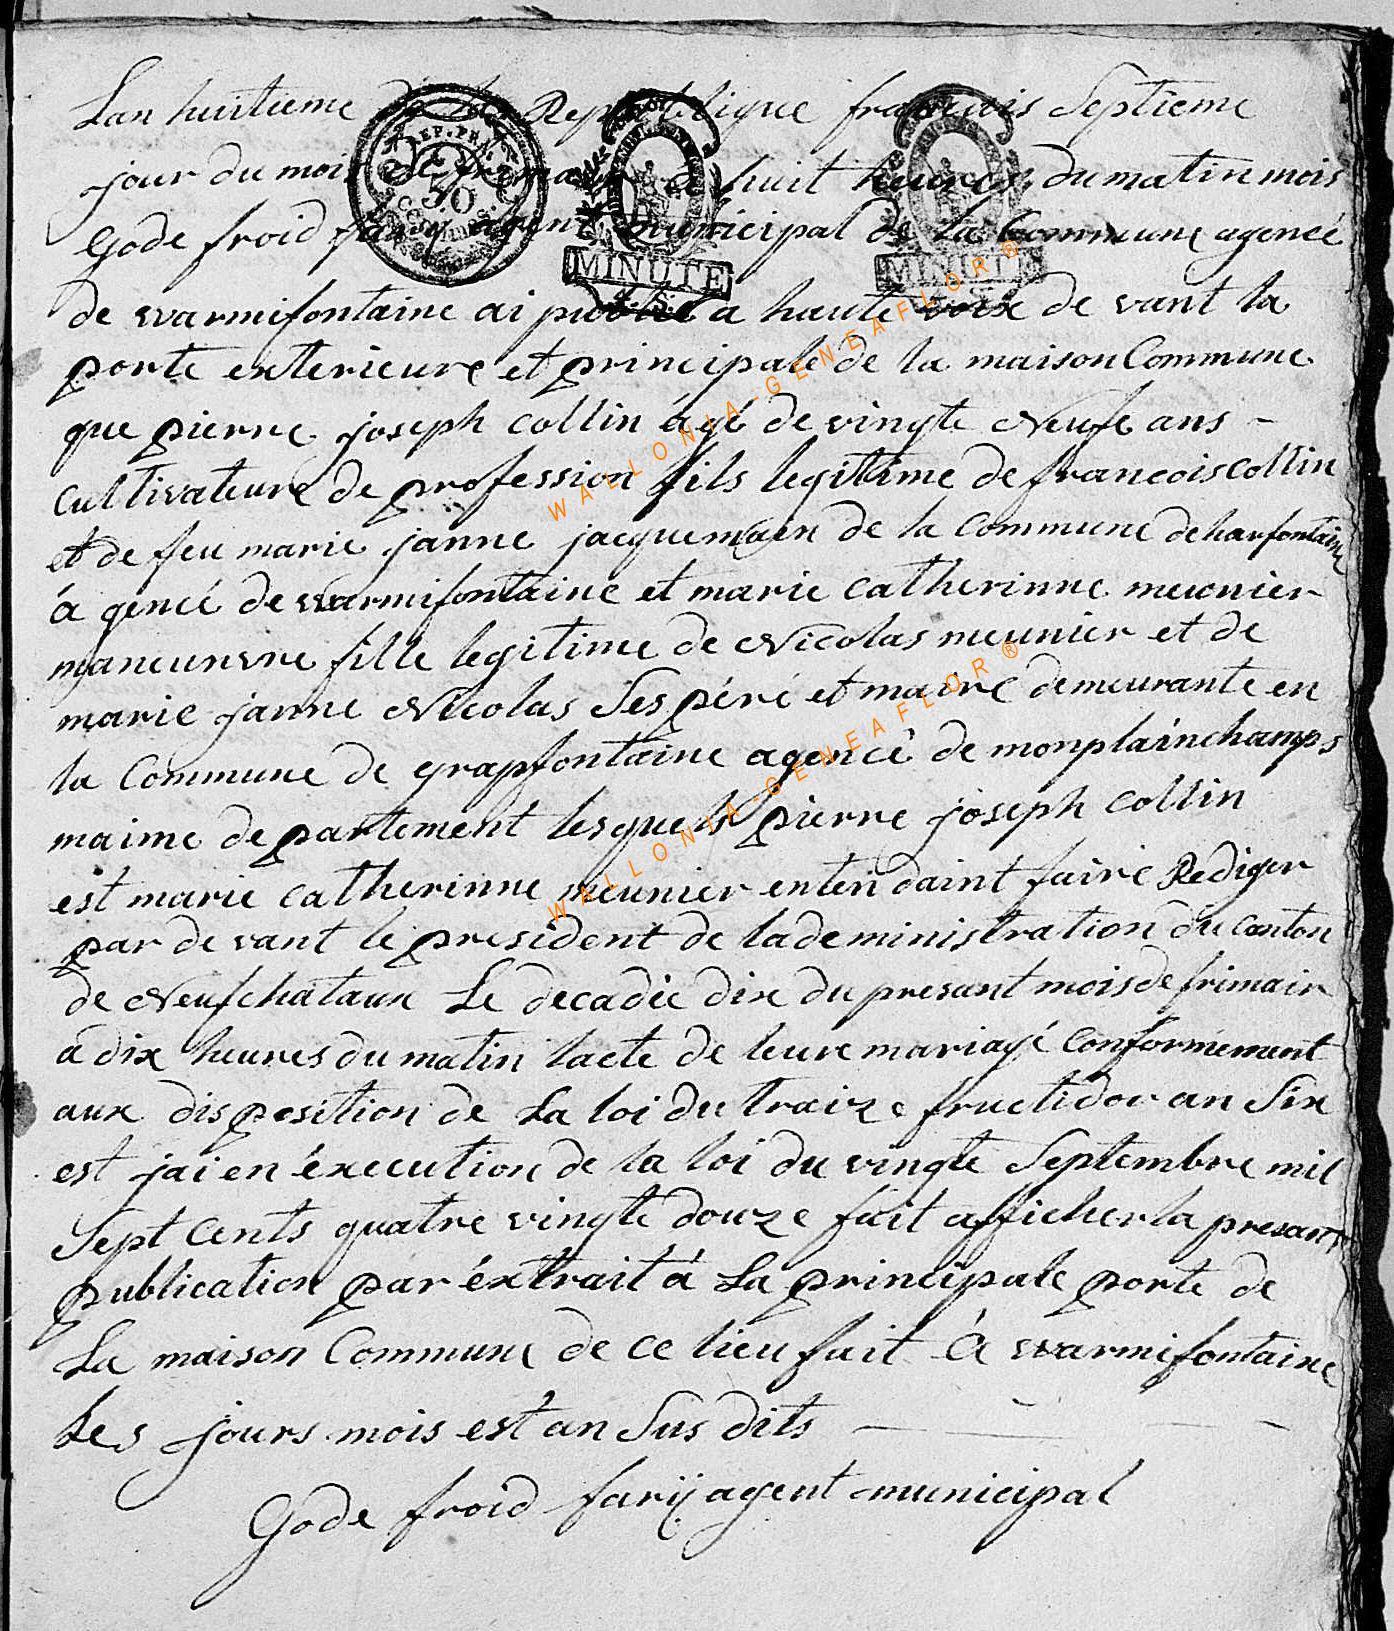 Lan huitieme de la Republique francais Septieme
jour du mois de frimair a huit heures du matin mois
gode froid farij agent municipal de la Commune agencé
de warmifontaine ai publié a haute voix de vant la
porte exterieure et principale de la maison Commune
que pierre joseph Collin ágé de vingte Neufe ans -
Cultivateure de profession fils legitime de francois collin
et de feu marie janne jacquemaen de la Commune de hanfontaine
á gencé de warmifontaine et marie catherinne meunier
maneurvre fille legitime de Nicolas meunier et de
marie janne Nicolas Ses péré et maire demeurante en
la Commune de grapfontaine agencé de monplainchamps
maime departement lesquels pierre joseph Collin
est marie catherinne meunier enten daint faire Rediger
par de vant le president de ladeministration du Canton
de Neufchataux Le decadie dix du presant mois de frimair
á dix heures du matin lacte de leure mariagé Conformement
aux disposition de La loi du traize fructidor an Six
est jai en éxecution de la loi du vingte Septembre mil
Sept Cents quatre vingte douze fait afficher la presant
publication par éxtrait á La principale porte de
La maison Commune de ce lieu fait á warmifontaine
Les jours mois est an Sus dits
Gode froid farij agent municipal
REP. FRA.
50
CENTIMES
MINUTE
MINUTE
WALLONIA-GENEAFLOR®
WALLONIA-GENEAFLOR®